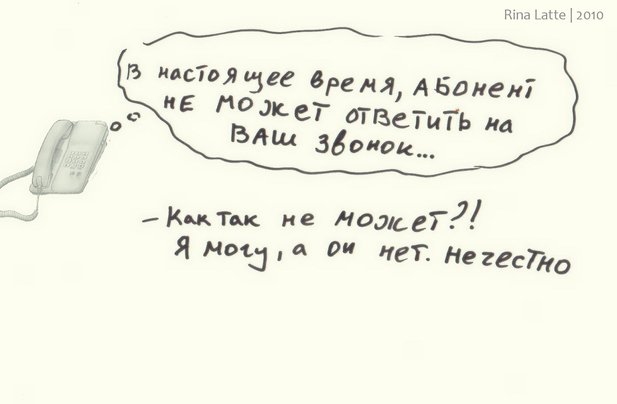 Rina Latte | 2010
В настоящее время, абонент
не может ответить на
ваш звонок...
- Как так не может?!
Я могу, а он нет. Нечестно